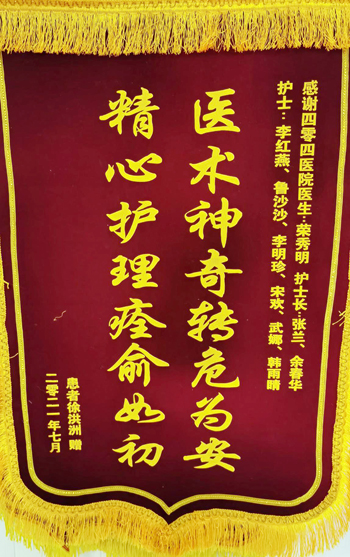 感谢四零四医院医生：荣秀明 护士长：张兰、余春华
护士：李红燕、鲁沙沙、李明珍、宋欢、武娜、韩雨晴
医术神奇转危为安
精心护理痊俞如初
患者徐洪洲 赠
二零二一年七月